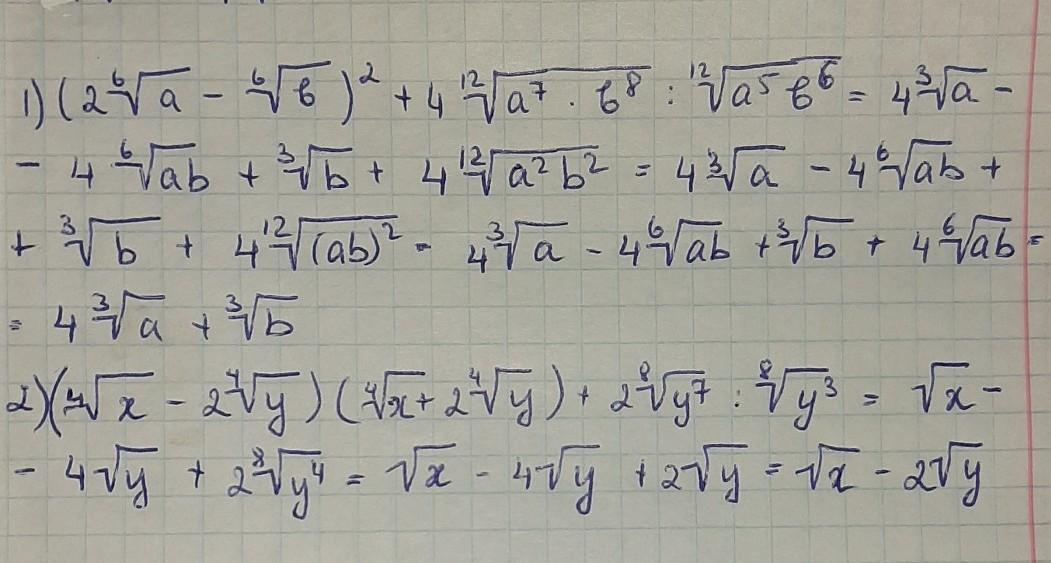 1) (2 ⁶√a − ⁶√b)² + 4 ¹²√(a⁷ · b⁸) : ¹²√(a⁵b⁶) = 4 ³√a −
− 4 ⁶√(ab) + ³√b + 4 ¹²√(a²b²) = 4 ³√a − 4 ⁶√(ab) +
+ ³√b + 4 ¹²√((ab)²) = 4 ³√a − 4 ⁶√(ab) + ³√b + 4 ⁶√(ab) =
= 4 ³√a + ³√b
2) (⁴√x − 2 ⁴√y) (⁴√x + 2 ⁴√y) + 2 ⁸√(y⁷) : ⁸√(y³) = √x −
− 4√y + 2 ⁸√(y⁴) = √x − 4√y + 2√y = √x − 2√y